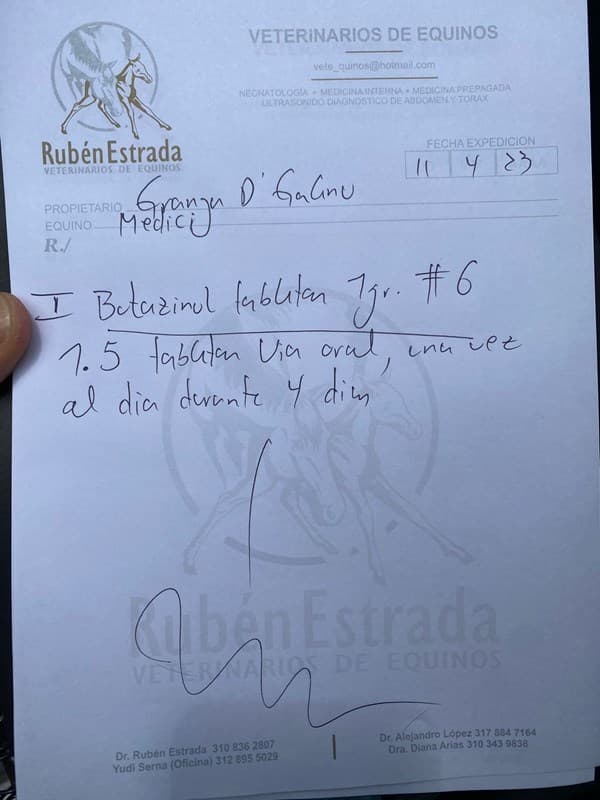 VETERINARIOS DE EQUINOS
vete_quinos@hotmail.com
NEONATOLOGÍA • MEDICINA INTERNA • MEDICINA PREPAGADA
ULTRASONIDO DIAGNOSTICO DE ABDOMEN Y TORAX
Rubén Estrada
VETERINARIOS DE EQUINOS
FECHA EXPEDICION
11 4 23
PROPIETARIO Granja D'
EQUINO Medici
R./
I Butazinol tabletas 1gr. #6
1.5 tabletas Via oral, una vez
al dia durante 4 dias
Rubén Estrada
VETERINARIOS DE EQUINOS
Dr. Rubén Estrada 310 836 2807
Yudi Serna (Oficina) 312 895 5029
Dr. Alejandro López 317 884 7164
Dra. Diana Arias 310 343 9838